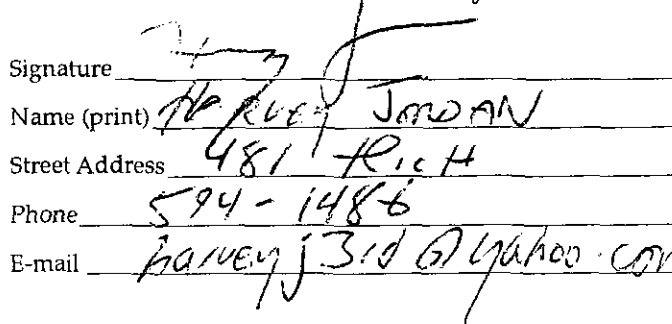 Signature
Name (print) Harvey Jordan
Street Address 481 Rich
Phone 594-1486
E-mail harveyj3rd@yahoo.com